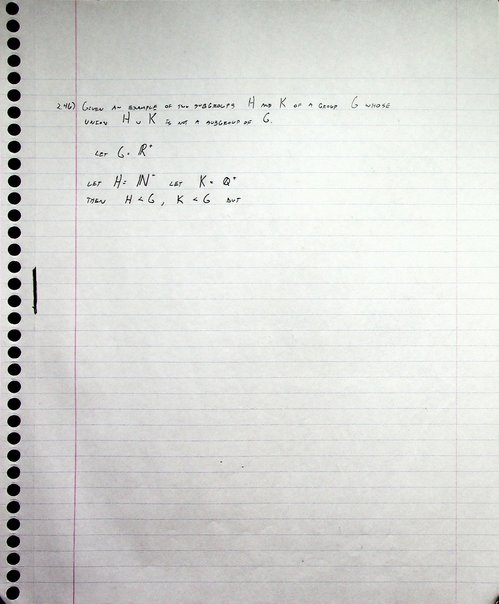 2.46) GIVEN AN EXAMPLE OF TWO SUBGROUPS H AND K OF A GROUP G WHOSE
UNION H ∪ K IS NOT A SUBGROUP OF G.
LET G = ℝ⁺
LET H = ℕ⁻ LET K = ℚ⁺
THEN H < G, K < G BUT